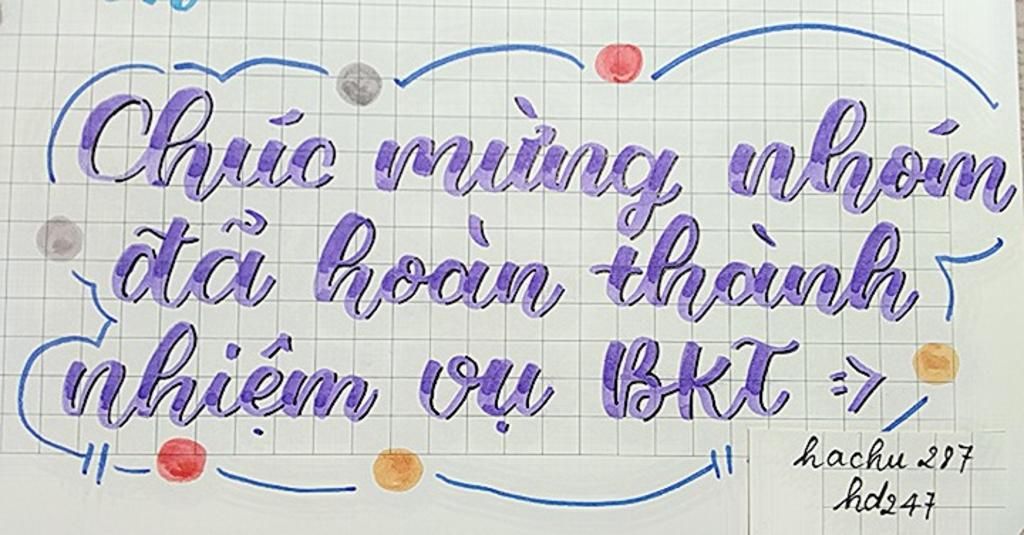 Chúc mừng nhóm
đã hoàn thành
nhiệm vụ BKT =>
hachu 287
hd247